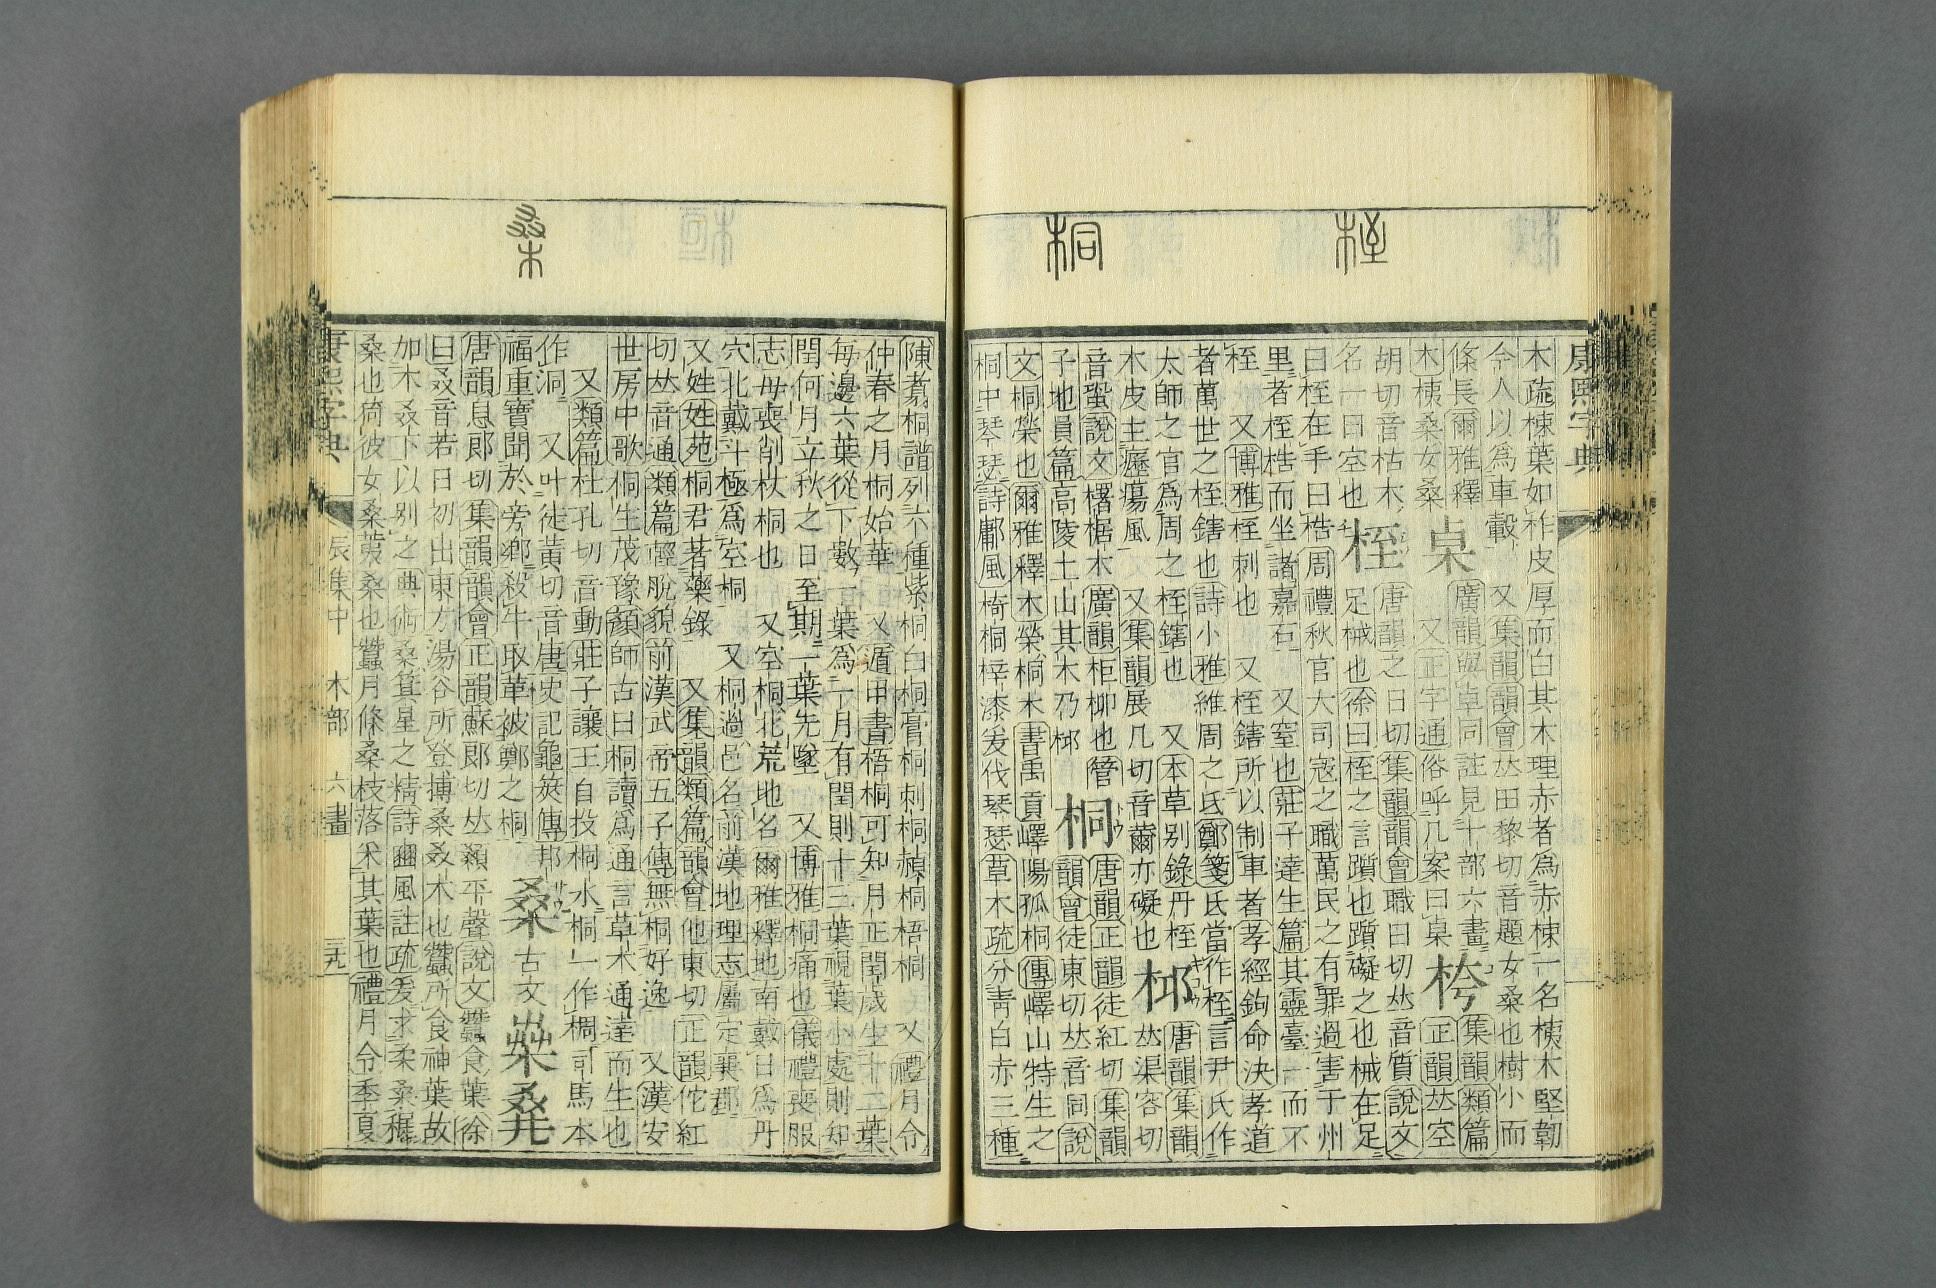 桎
桐
康熙字典
木疏棟葉如柞皮厚而白其木理赤者為赤棟一名桋木堅韌
今人以為車轂 又集韻韻會𠀤田黎切音題女桑也樹小而
條長爾雅釋木桋桑女桑 桌 廣韻與卓同註見十部六畫 又正字通俗呼几案曰桌 桍 集韻類篇正韻𠀤空
胡切音枯木名一曰空也 桎 唐韻之日切集韻韻會職日切𠀤音質說文足械也徐曰桎之言躓也躓礙之也械在足
曰桎在手曰梏周禮秋官大司寇之職萬民之有罪過害于州
里者桎梏而坐諸嘉石 又窒也莊子達生篇其靈臺一而不
桎 又博雅桎刺也 又桎鎋所以制車者孝經鉤命決孝道
者萬世之桎鎋也詩小雅維周之氐鄭箋氐當作桎言尹氏作
太師之官為周之桎鎋也 又本草別錄丹桎木皮主癧瘍風 又集韻展几切音薾亦礙也 桏 唐韻集韻𠀤渠容切
音蛩說文椐木 廣韻柜柳也管子地員篇高陵土山其木乃桏 桐 唐韻正韻徒紅切集韻韻會徒東切𠀤音同說
文桐榮也爾雅釋木榮桐木書禹貢嶧陽孤桐傳嶧山特生之
桐中琴瑟詩鄘風椅桐梓漆爰伐琴瑟草木疏分靑白赤三種
桑
陳翥桐譜列六種紫桐白桐膏桐刺桐赬桐梧桐 又禮月令
仲春之月桐始華 又遁甲書梧桐可知月正閏歲生十二葉
每邊六葉從下數一葉為一月有閏則十三葉視葉小處則知
閏何月立秋之日至期一葉先墜 又博雅桐痛也儀禮喪服
志母喪削杖桐也 又空桐北荒地名爾雅釋地南戴日為丹
穴北戴斗極為空桐 又桐過邑名前漢地理志屬定襄郡
又姓姓苑桐君著藥錄 又集韻類篇韻會他東切正韻佗紅
切𠀤音通類篇輕脫貌前漢武帝五子傳無桐好逸 又漢安
世房中歌桐生茂豫顏師古曰桐讀為通言草木通達而生也
又類篇杜孔切音動莊子讓王自投桐水桐一作稠司馬本
作洞 又叶徒黃切音唐史記龜筴傳邦福重寶聞於旁鄉殺牛取革被鄭之桐 桑 古文 桒
唐韻息郞切集韻韻會正韻蘇郞切𠀤顙平聲說文蠶食葉徐
曰叒音若日初出東方湯谷所登搏桑叒木也蠶所食神葉故
加木叒下以別之典術桑箕星之精詩豳風註疏爰求柔桑穉
桑也猗彼女桑荑桑也蠶月條桑枝落采其葉也禮月令季夏
康熙字典 辰集中 木部 六畫